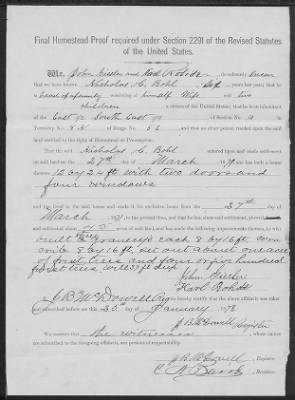 Final Homestead Proof required under Section 2291 of the Revised Statutes
of the United States.
We, John Giesler and Karl Rohde do solemnly swear
that we have known Nicholas C. Bohl for years last past; that he
is head of a family consisting of himself Wife and two
children a citizen of the United States; that he is an inhabitant
of the East ½ South East ¼ of Section No.
Township No. 8 N of Range No. 5 E and that no other person resided upon the said
land entitled to the right of Homestead or Pre-emption.
That the said Nicholas C. Bohl entered upon and made settlement
on said land on the 27th day of March 1871 and has built a house
thereon 12 by 24 ft with two doors and
four windows
and has lived in the said house and made it his exclusive home from the 27th day of
March 1871, to the present time, and that he has, since said settlement, plowed
and cultivated about 45 acres of said land, and has made the following improvements thereon, to wit:
built three Granerys each 8 by 16 ft, corn
crib 8 by 16 ft, set out about one acre
of fruit trees and four or five hundred
forest trees, well 37 ft deep
John Giesler
Karl Rohde
I, J B McDowell Register do hereby certify that the above affidavit was taken and
subscribed before me this 30 day of January 1878
J B McDowell Register
We certify that the witnesses whose names
are subscribed to the foregoing affidavit, are persons of respectability.
J B McDowell, Register.
, Receiver.